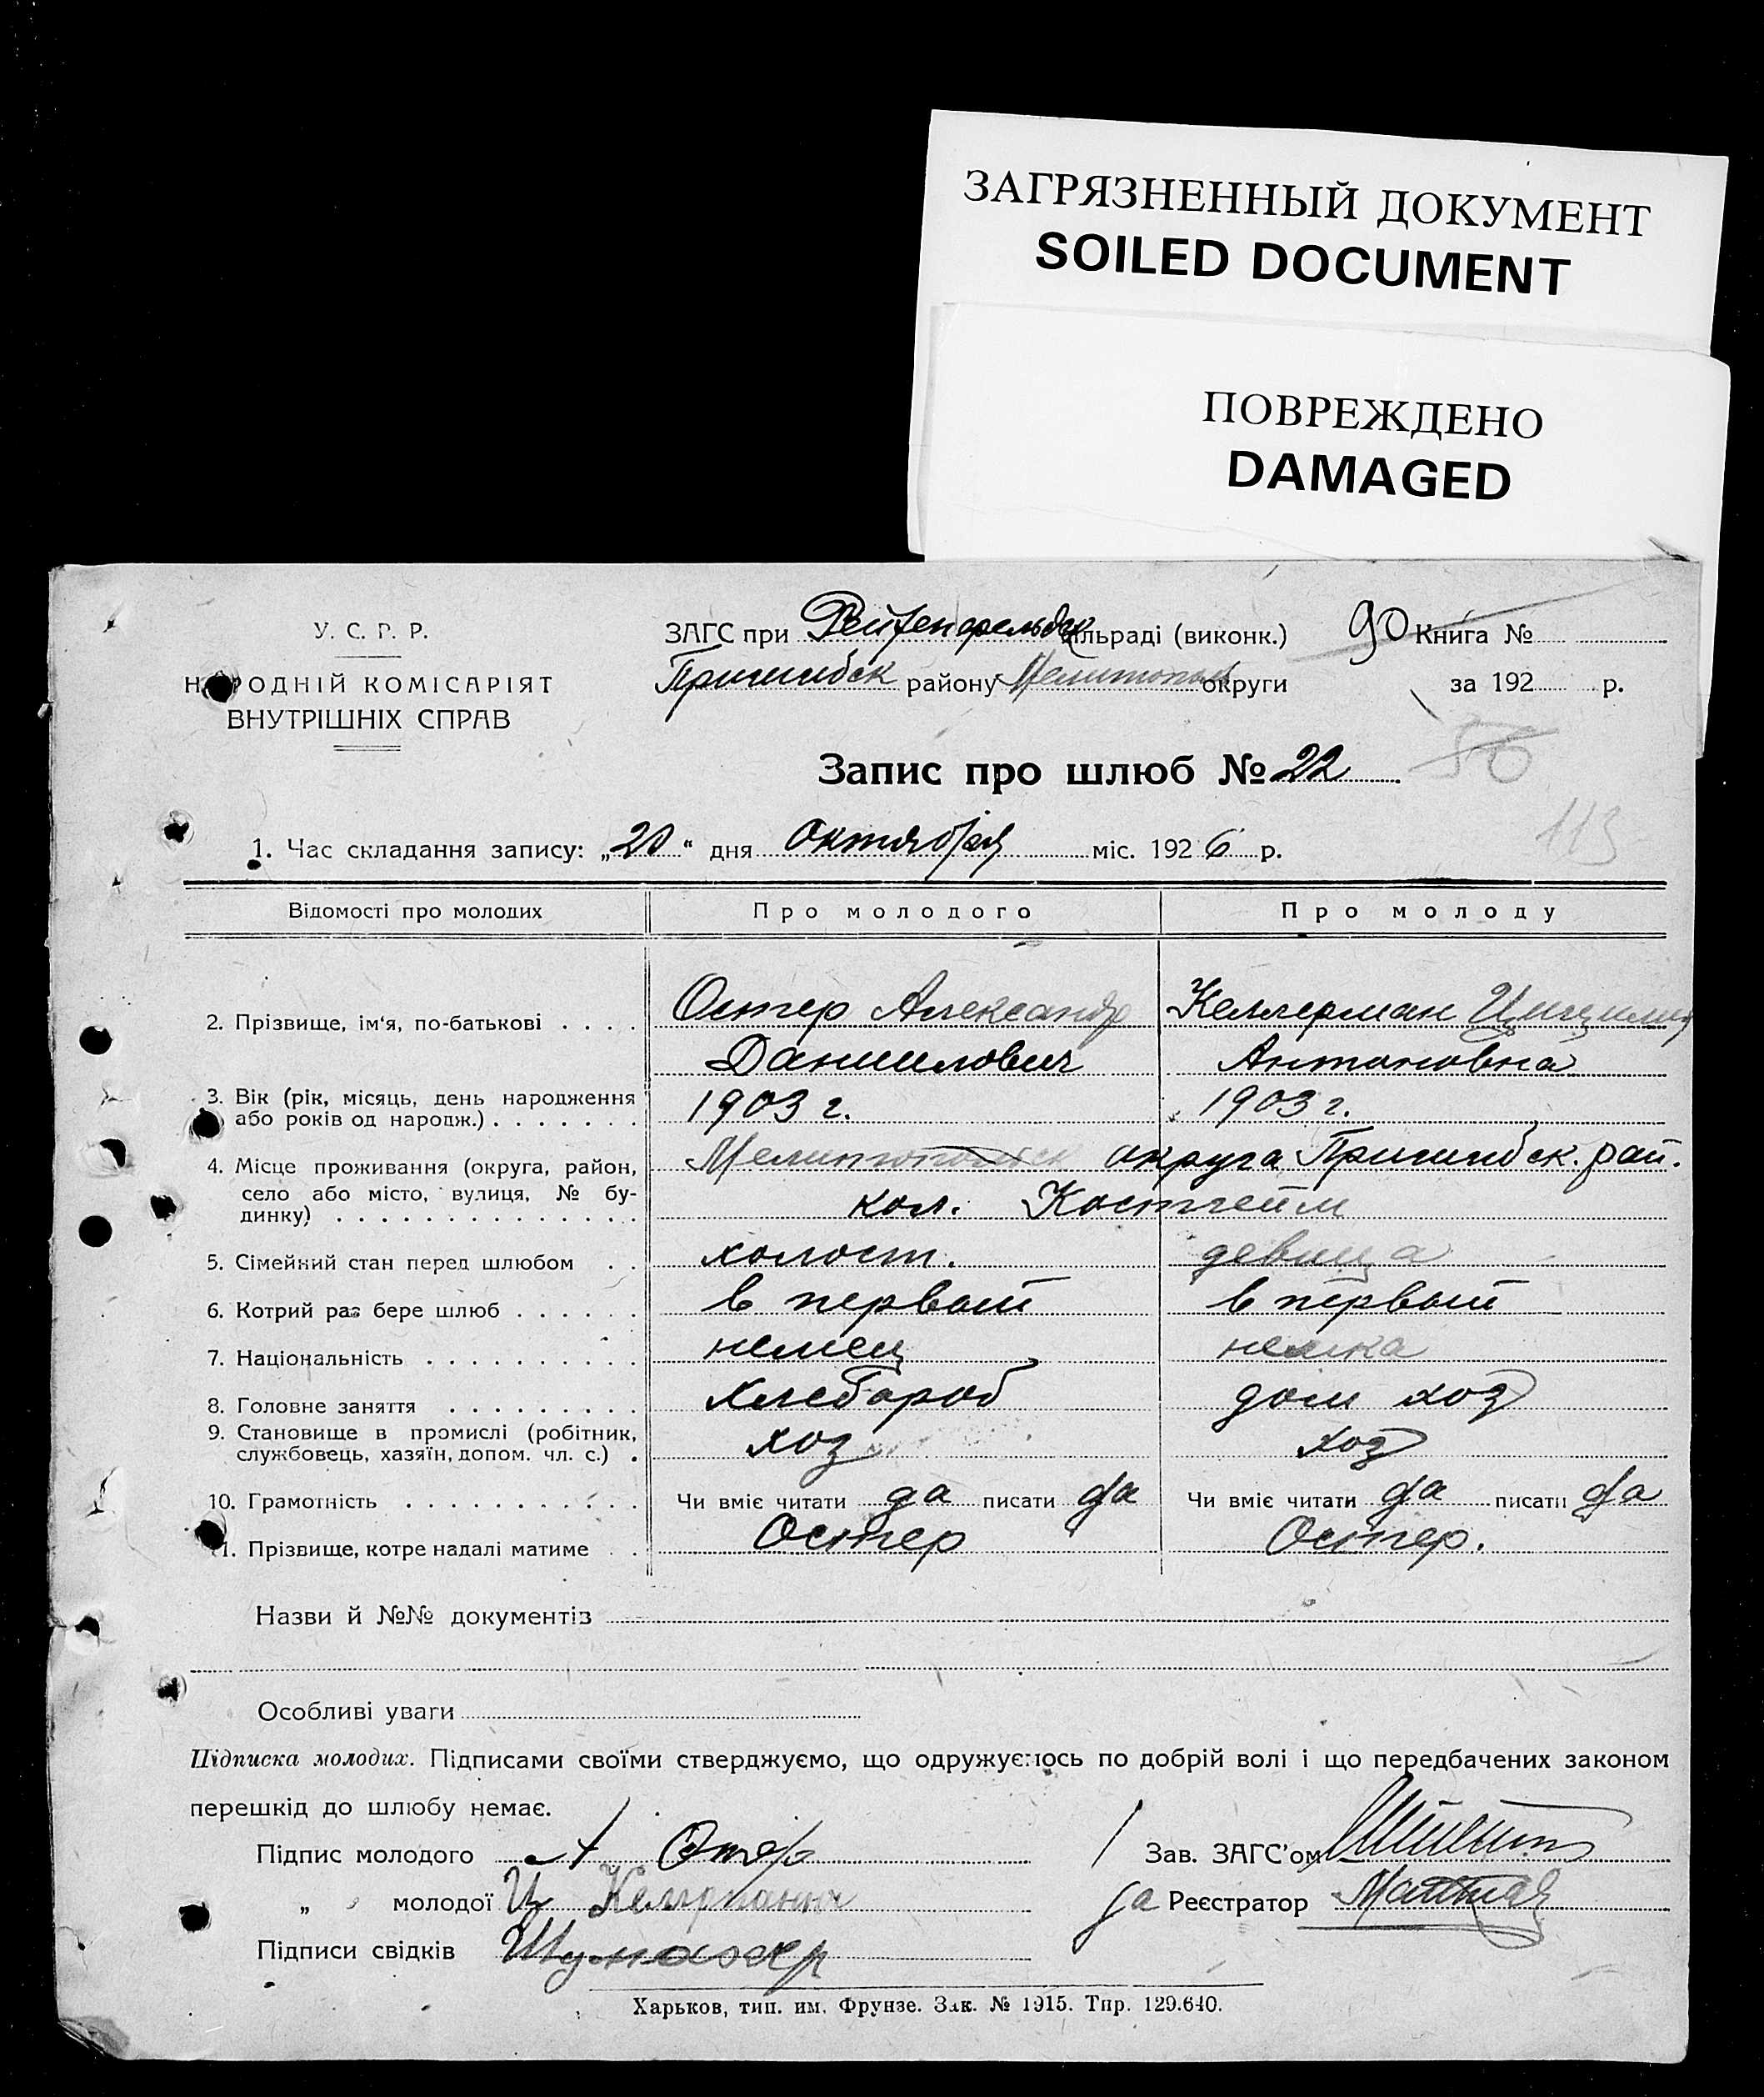 ЗАГРЯЗНЕННЫЙ ДОКУМЕНТ
SOILED DOCUMENT
ПОВРЕЖДЕНО
DAMAGED
У. С. Р. Р.
НАРОДНІЙ КОМІСАРІЯТ
ВНУТРІШНІХ СПРАВ
ЗАГС при Рейхенфельдск сільраді (виконк.)
90 Книга №
Пришибск району Мелитополь округи
за 192 р.
Запис про шлюб № 22
50
113
1. Час складання запису: „20" дня октября міс. 1926 р.
Відомості про молодих Про молодого Про молоду
2. Прізвище, ім'я, по-батькові Остер Александр Келлерман Цицилия
Даниилович Антоновна
3. Вік (рік, місяць, день народження
або років од народж.) 1903 г. 1903 г.
4. Місце проживання (округа, район, Мелитопольск округа Пришибск. рай.
село або місто, вулиця, № бу-
динку) кол. Костгейм
5. Сімейний стан перед шлюбом холост. девица
6. Котрий раз бере шлюб в первый в первый
7. Національність немец немка
8. Головне заняття хлебороб дом хоз
9. Становище в промислі (робітник,
службовець, хазяїн, допом. чл. с.) хоз хоз
10. Грамотність Чи вміє читати да писати да Чи вміє читати да писати да
11. Прізвище, котре надалі матиме Остер Остер.
Назви й №№ документів
Особливі уваги
Підписка молодих. Підписами своїми стверджуємо, що одружуємось по добрій волі і що передбачених законом
перешкід до шлюбу немає.
Підпис молодого А Остер
Зав. ЗАГС'ом
„ молодої Ц Келлерманн
Реєстратор
Підписи свідків Шумахер
Харьков, тип. им. Фрунзе. Зак. № 1915. Тир. 129.640.